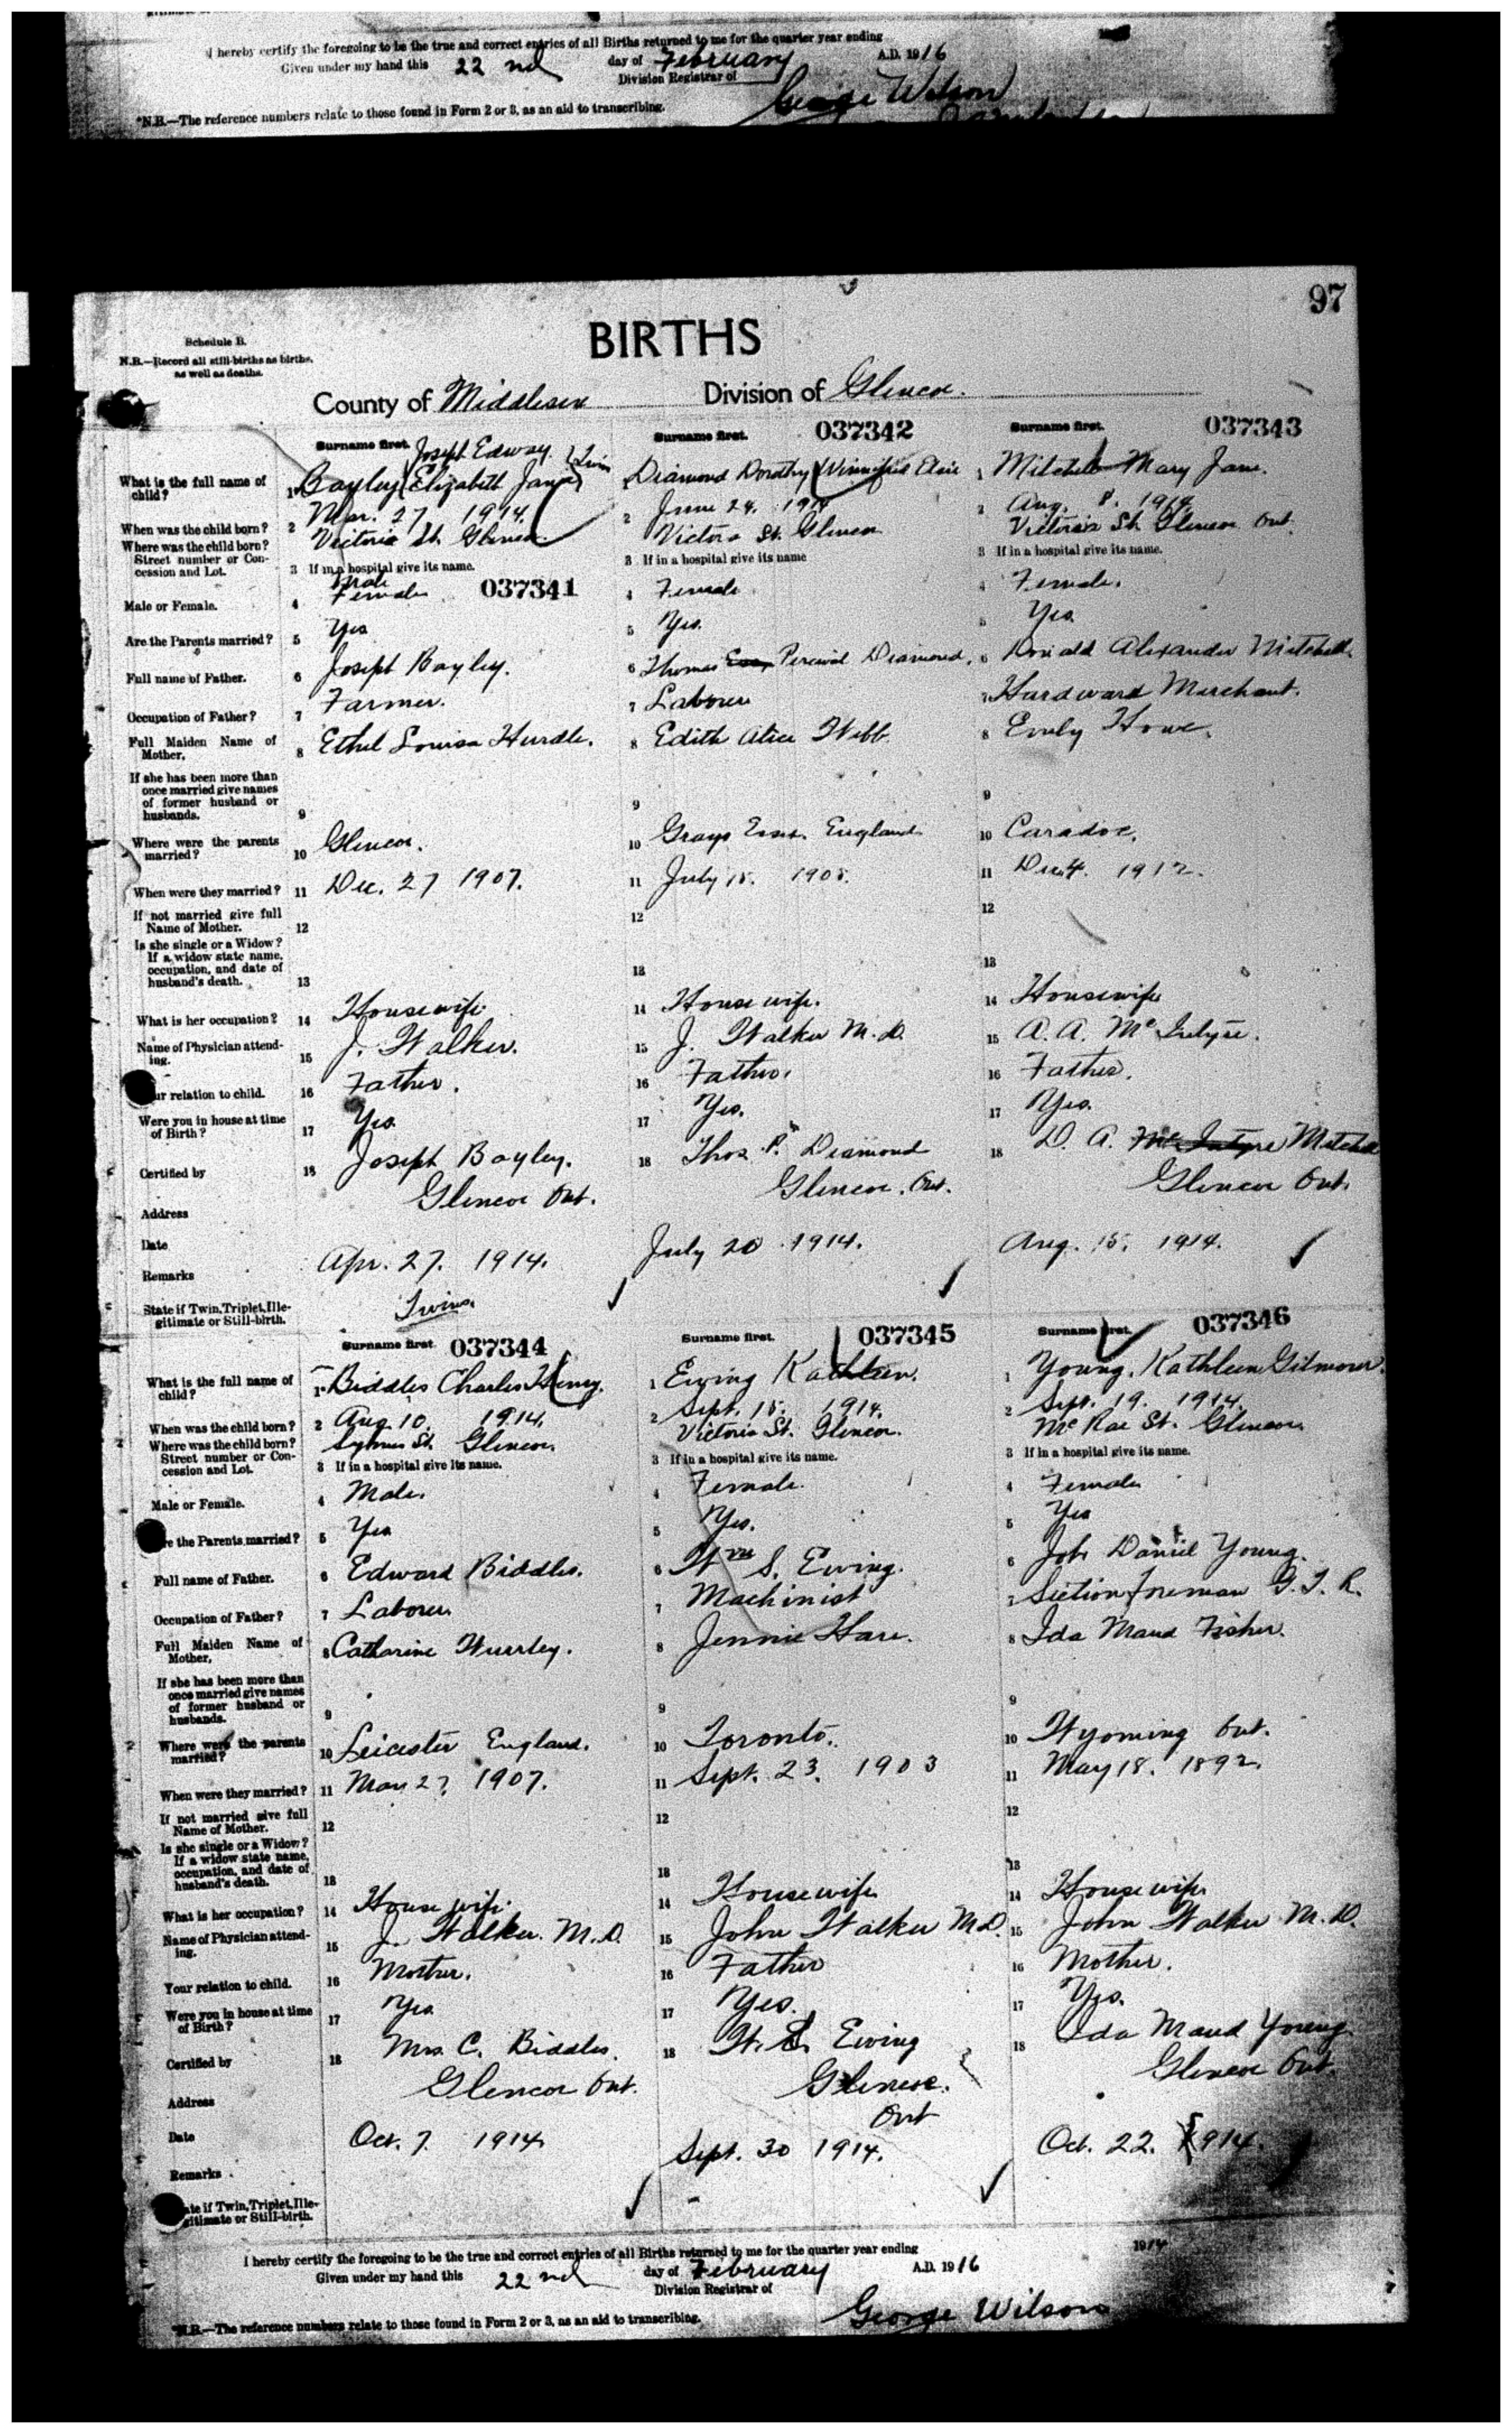 I hereby certify the foregoing to be the true and correct entries of all Births returned to me for the quarter year ending
Given under my hand this 22nd day of February A.D. 1916
Division Registrar of
George Wilson
*N.B.—The reference numbers relate to those found in Form 2 or 3, as an aid to transcribing.
97
Schedule B.
N.B.—Record all still-births as births, as well as deaths.
BIRTHS
County of Middlesex Division of Glencoe.
Surname first. Joseph Edway Surname first. 037342 Surname first. 037343
What is the full name of child? 1 Bayley Elizabeth Jane Twin Diamond Dorothy Winnifred Elsie 1 Mitchell Mary Jane.
When was the child born? 2 Mar. 27 1914. 2 June 24. 1914 2 Aug. 8. 1914
Where was the child born? Street number or Concession and Lot. Victoria St. Glencoe. Victora St. Glencoe Victoria St. Glencoe Ont.
3 If in a hospital give its name. 3 If in a hospital give its name 3 If in a hospital give its name.
Male
Male or Female. 4 Female 037341 4 Female 4 Female.
Are the Parents married? 5 Yes 5 Yes. 5 Yes
Full name of Father. 6 Joseph Bayley. 6 Thomas Percival Diamond. 6 Donald Alexander Mitchell.
Occupation of Father? 7 Farmer. 7 Laborer 7 Hardward Merchant.
Full Maiden Name of Mother, 8 Ethel Louisa Hurdle. 8 Edith Alice Webb 8 Emily Howe.
If she has been more than once married give names of former husband or husbands. 9 9 9
Where were the parents married? 10 Glencoe. 10 Grays Essex. England 10 Caradoc.
When were they married? 11 Dec. 27 1907. 11 July 18. 1908. 11 Dec. 4. 1912.
If not married give full Name of Mother. 12 12 12
Is she single or a Widow? If a widow state name, occupation, and date of husband's death. 13 13 13
What is her occupation? 14 Housewife. 14 Housewife. 14 Housewife
Name of Physician attending. 15 J. Walker. 15 J. Walker M.D. 15 A. A. McIntyre.
ur relation to child. 16 Father. 16 Father. 16 Father.
Were you in house at time of Birth? 17 Yes. 17 Yes. 17 Yes.
Certified by 18 Joseph Bayley. 18 Thos. P. Diamond 18 D. A. McIntyre Mitchell
Address Glencoe Ont. Glencoe. Ont. Glencoe Ont.
Date Apr. 27. 1914. July 20 1914. Aug. 15. 1914.
Remarks
State if Twin, Triplet, Illegitimate or Still-birth. Twins.
Surname first. 037344 Surname first. 037345 Surname first. 037346
What is the full name of child? 1 Biddles Charles Henry. 1 Ewing Kathleen. 1 Young. Kathleen Gilmour.
When was the child born? 2 Aug. 10. 1914. 2 Sept. 15. 1914. 2 Sept. 19. 1914.
Where was the child born? Street number or Concession and Lot. St. Glencoe. Victoria St. Glencoe. McRae St. Glencoe.
3 If in a hospital give its name. 3 If in a hospital give its name. 3 If in a hospital give its name.
Male or Female. 4 Male. 4 Female. 4 Female
re the Parents married? 5 Yes 5 Yes. 5 Yes
Full name of Father. 6 Edward Biddles. 6 Wm S. Ewing. 6 Daniel Young.
Occupation of Father? 7 Laborer 7 Machinist 7 Section foreman G. T. R.
Full Maiden Name of Mother, 8 Catharine 8 Jennie Hare. 8 Ida Maud Fisher.
If she has been more than once married give names of former husband or husbands. 9 9 9
Where were the parents married? 10 Leicester England. 10 Toronto. 10 Wyoming Ont.
When were they married? 11 27 1907. 11 Sept. 23. 1903 11 May 18. 1892.
If not married give full Name of Mother. 12 12 12
Is she single or a Widow? If a widow state name, occupation, and date of husband's death. 13 13 13
What is her occupation? 14 Housewife. 14 Housewife 14 Housewife
Name of Physician attending. 15 J. Walker. M.D. 15 John Walker M.D. 15 John Walker M.D.
Your relation to child. 16 Mother. 16 Father 16 Mother.
Were you in house at time of Birth? 17 Yes 17 Yes. 17 Yes.
Certified by 18 Mrs. C. Biddles. 18 W. S. Ewing 18 Ida Maud Young
Address Glencoe Ont. Glencoe. Ont Glencoe Ont.
Date Oct. 7. 1914 Sept. 30 1914. Oct. 22. 1914.
Remarks
ate if Twin, Triplet, Illegitimate or Still-birth.
I hereby certify the foregoing to be the true and correct entries of all Births returned to me for the quarter year ending 1914
Given under my hand this 22nd day of February A.D. 1916
Division Registrar of
George Wilson
*N.B.—The reference numbers relate to those found in Form 2 or 3, as an aid to transcribing.